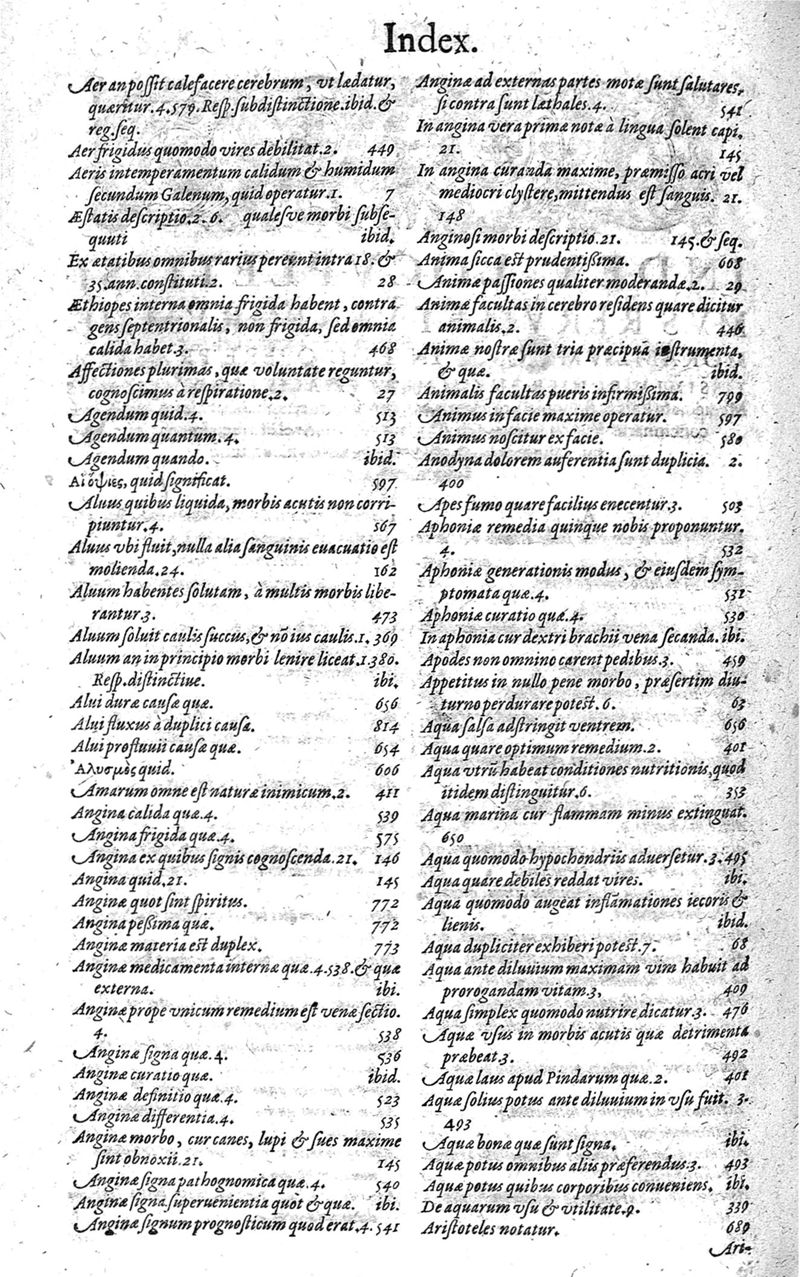 Index.
Aer an poſſit calefacere cerebrum, vt lædatur,
quæritur.4.579.Reſp.ſubdiſtinctione.ibid.&
reg.ſeq.
Aer frigidus quomodo vires debilitat.2. 449
Aeris intemperamentum calidum & humidum
ſecundum Galenum, quid operatur.1. 7
Æſtatis deſcriptio.2.6. qualesve morbi ſubſe-
quuti ibid.
Ex ætatibus omnibus rarius pereunt intra 18.&
35.ann.conſtituti.2. 28
Æthiopes interna omnia frigida habent, contra
gens ſeptentrionalis, non frigida, ſed omnia
calida habet.3. 468
Affectiones plurimas, quæ voluntate reguntur,
cognoſcimus à reſpiratione.2. 27
Agendum quid.4. 513
Agendum quantum.4. 513
Agendum quando. ibid.
quid ſignificat. 597
Aluus quibus liquida, morbis acutis non corri-
piuntur.4. 567
Aluus vbi fluit, nulla alia ſanguinis euacuatio eſt
molienda.24. 162
Aluum habentes ſolutam, à multis morbis libe-
rantur.3. 473
Aluum ſoluit caulis ſuccus,& nō ius caulis.1. 369
Aluum an in principio morbi lenire liceat.1.380.
Reſp.diſtinctiue. ibi.
Alui duræ cauſæ quæ. 656
Alui fluxus à duplici cauſa. 814
Alui profluuii cauſæ quæ. 654
Ἀλυσμὸς quid. 606
Amarum omne eſt naturæ inimicum.2. 411
Angina calida quæ.4. 539
Angina frigida quæ.4. 575
Angina ex quibus ſignis cognoſcenda.21. 146
Angina quid.21. 145
Anginæ quot ſint ſpiritus. 772
Angina peſſima quæ. 772
Anginæ materia eſt duplex. 773
Anginæ medicamenta internæ quæ.4.538.& quæ
externa. ibi.
Anginæ prope vnicum remedium eſt venæ ſectio.
4. 538
Anginæ ſigna quæ.4. 536
Anginæ curatio quæ. ibid.
Anginæ definitio quæ.4. 523
Anginæ differentia.4. 535
Anginæ morbo, cur canes, lupi & ſues maxime
ſint obnoxii.21. 145
Anginæ ſigna pathognomica quæ.4. 540
Anginæ ſigna ſuperuenientia quot & quæ. ibi.
Anginæ ſignum prognoſticum quod erat.4. 541
Anginæ ad externas partes motæ ſunt ſalutares,
ſi contra ſunt læthales.4. 541
In angina vera primæ notæ à lingua ſolent capi.
21. 145
In angina curanda maxime, præmiſſo acri vel
mediocri clyſtere, mittendus eſt ſanguis. 21.
148
Anginoſi morbi deſcriptio.21. 145.& ſeq.
Anima ſicca eſt prudentiſſima. 608
Animæ paſſiones qualiter moderandæ.2. 29
Animæ facultas in cerebro reſidens quare dicitur
animalis.2. 446
Animæ noſtræ ſunt tria præcipua inſtrumenta,
& quæ. ibid.
Animalis facultas pueris infirmiſſima. 799
Animus in facie maxime operatur. 597
Animus noſcitur ex facie. 580
Anodyna dolorem auferentia ſunt duplicia. 2.
400
Apes fumo quare facilius enecentur.3. 503
Aphoniæ remedia quinque nobis proponuntur.
4. 532
Aphoniæ generationis modus, & eiuſdem ſym-
ptomata quæ.4. 531
Aphoniæ curatio quæ.4. 530
In aphonia cur dextri brachii vena ſecanda. ibi.
Apodes non omnino carent pedibus.3. 459
Appetitus in nullo pene morbo, præſertim diu-
turno perdurare poteſt.6. 63
Aqua ſalſa adſtringit ventrem. 656
Aqua quare optimum remedium.2. 401
Aqua vtrū habeat conditiones nutritionis, quod
itidem diſtinguitur.6. 353
Aqua marina cur flammam minus extinguat.
650
Aqua quomodo hypochondriis aduerſetur.3. 495
Aqua quare debiles reddat vires. ibi.
Aqua quomodo augeat inflāmationes iecoris &
lienis. ibid.
Aqua dupliciter exhiberi poteſt.7. 68
Aqua ante diluuium maximam vim habuit ad
prorogandam vitam.3. 409
Aqua ſimplex quomodo nutrire dicatur.3. 476
Aquæ vſus in morbis acutis quæ detrimenta
præbeat.3. 492
Aquæ laus apud Pindarum quæ.2. 401
Aquæ ſolius potus ante diluuium in vſu fuit. 3.
493
Aquæ bonæ quæ ſunt ſigna. ibi.
Aquæ potus omnibus aliis præferendus.3. 493
Aquæ potus quibus corporibus conueniens. ibi.
De aquarum vſu & vtilitate.9. 339
Ariſtoteles notatur. 689
Ari-